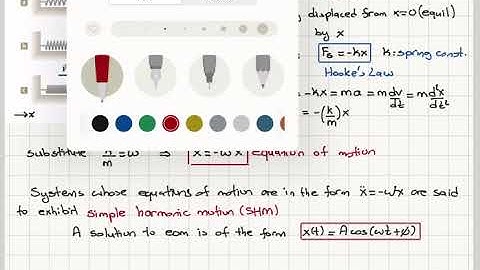 displaced from x=0 (equil)
by x
Fs = -kx k: spring const.
Hooke's Law
-kx = ma = m dv/dt = m d²x/dt²
→x = -(k/m)x
substitute k/m = ω² ⇒ ẍ = -ω²x equation of motion
Systems whose equations of motion are in the form ẍ = -ω²x are said
to exhibit simple harmonic motion (SHM)
A solution to eom is of the form x(t) = A cos(ωt + ϕ)